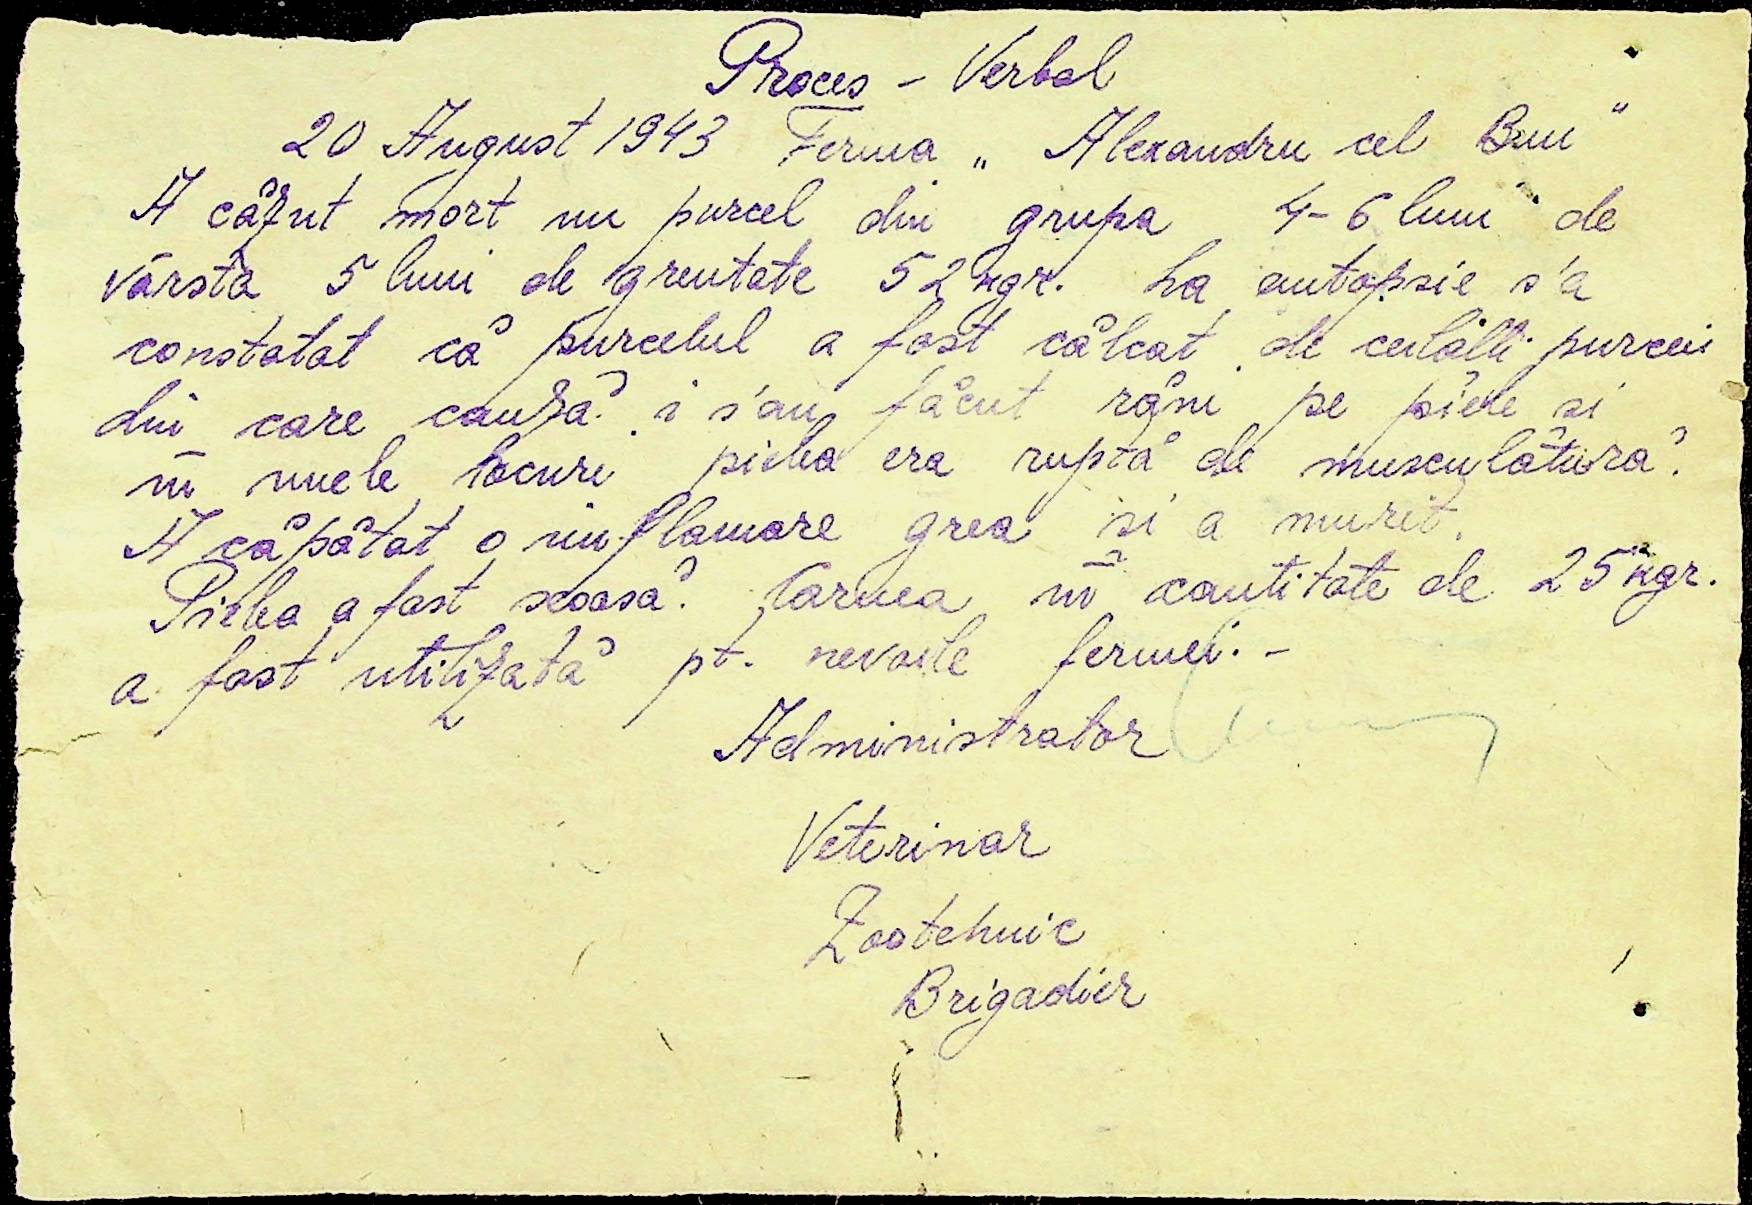 Proces - Verbal
20 August 1943 Ferma „ Alexandru cel Bun "
A căzut mort un purcel din grupa 4-6 luni de
vârsta 5 luni de greutate 52 kgr. La autopsie s'a
constatat că purcelul a fost călcat de ceilalti purcei
din care cauză i s'au făcut răni pe piele si
în unele locuri pielea era ruptă de musculătură.
A căpătat o inflamare grea si a murit.
Pielea a fost scoasă. Carnea în cantitate de 25 kgr.
a fost utilizată pt. nevoile fermei. -
Administrator
Veterinar
Zootehnic
Brigadier